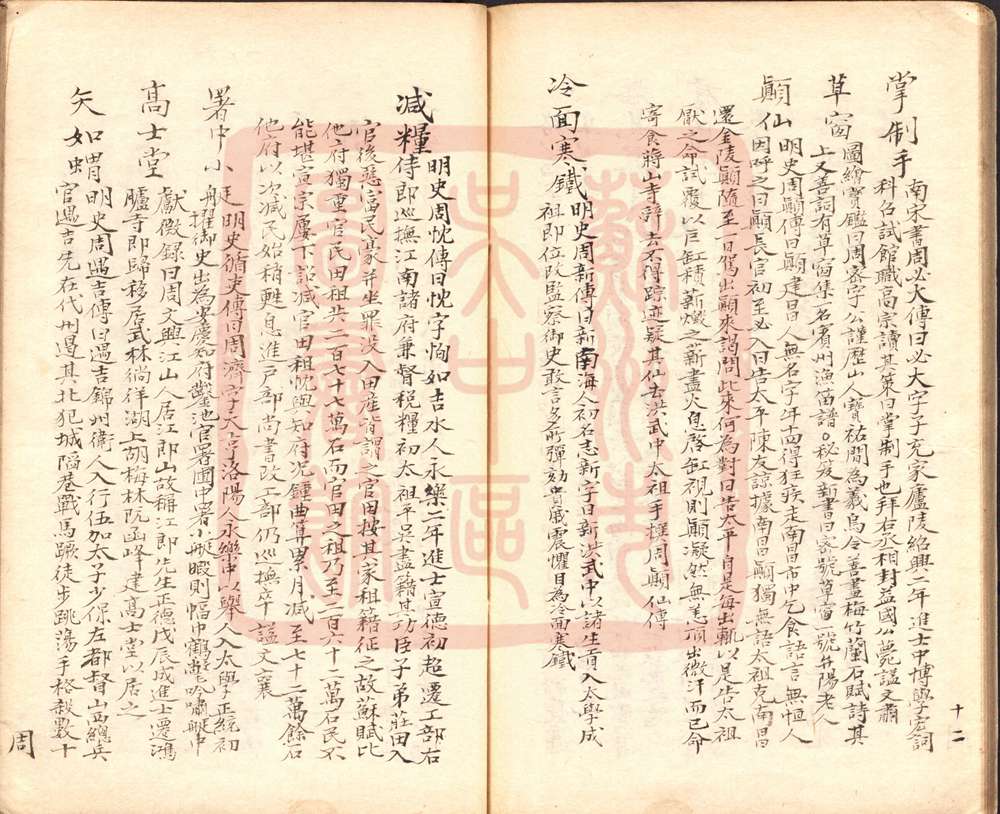 掌制手 南宋書周必大傳曰必大字子充家廬陵紹興二年進士中博學宏詞
科召試館職高宗讀其策曰掌制手也拜右丞相封益國公薨諡文肅
草窗 圖繪寶鑑曰周密字公謹歷山人寶祐間為義烏令善畫梅竹蘭石賦詩其
上又善詞有草窗集名賓州漁笛譜○秘笈新書曰密號草窗一號弁陽老人
顛仙 明史周顛傳曰顛建昌人無名字年十四得狂疾走南昌市中乞食語言無恒人
因呼之曰顛長官初至必入曰告太平陳友諒據南昌顛獨無語太祖克南昌
還金陵顛隨至一日駕出顛來謁問此來何為對曰告太平自是每出輒以是告太祖
厭之命試覆以巨缸積薪煅之薪盡火息啓缸視則顛凝然無恙頂出微汗而已命
寄食蔣山寺辭去不得踪迹疑其仙去洪武中太祖手撰周顛仙傳
冷面寒鐵 明史周新傳曰新南海人初名志新字日新洪武中以諸生貢入太學成
祖即位改監察御史敢言多所彈劾貴戚震懼目為冷面寒鐵
十二
減糧 明史周忱傳曰忱字恂如吉水人永樂二年進士宣德初超遷工部右
侍郎巡撫江南諸府兼督稅糧初太祖平吳盡籍其功臣子弟莊田入
官後惡富民豪并坐罪沒入田產皆謂之官田按其家租籍征之故蘇賦比
他府獨重官民田租共二百七十七萬石而官田之租乃至二百六十二萬石民不
能堪宣宗屢下詔減官田租忱與知府况鍾曲算累月減至七十二萬餘石
他府以次減民始稍甦息進戶部尚書改工部仍巡撫卒諡文襄
署中小艇 明史循吏傳曰周濟字大亨洛陽人永樂中以舉人入太學正統初
擢御史出為安慶知府鑿池官署園中署小艇暇則幅巾鶴氅吟嘯艇中
高士堂 獻徵錄曰周文興江山人居江郎山故稱江郎先生正德戊辰成進士還鴻
臚寺即歸移居武林徜徉湖上胡梅林阮函峰建高士堂以居之
矢如蝟 明史周遇吉傳曰遇吉錦州衛人入行伍加太子少保左都督山西總兵
官遇吉先在代州遏其北犯城陷巷戰馬蹶徒步跳蕩手格殺數十
周